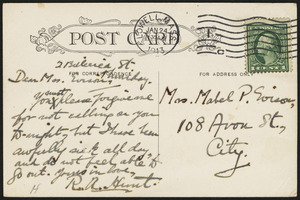 LOWELL, MASS.
JAN 24
1913
POST CARD
FOR CORRESPONDENCE
St.
Dear Mrs.
You must please forgive me
for not calling on you
to-night, but I have been
awfully sick all day,
and do not feel able to
go out. Yours in love,
R. A. Hunt.
H
Mrs. Mabel P.
108 Avon St.,
City.